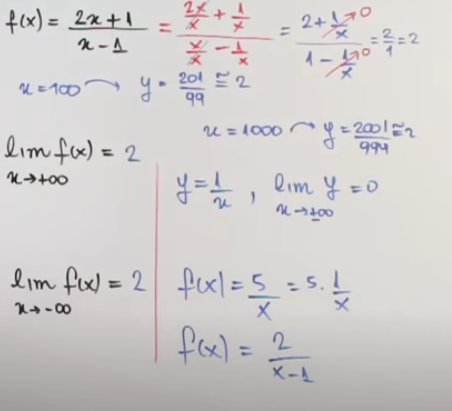 f(x) = (2x+1)/(x-1) = (2x/x + 1/x)/(x/x - 1/x) = (2 + 1/x → 0)/(1 - 1/x → 0) = 2/1 = 2
x = 100 → y = 201/99 ≅ 2
x = 1000 → y = 2001/999 ≅ 2
lim f(x) = 2
x → +∞
y = 1/x , lim y = 0
x → ±∞
lim f(x) = 2
x → -∞
f(x) = 5/x = 5 · 1/x
f(x) = 2/(x-1)